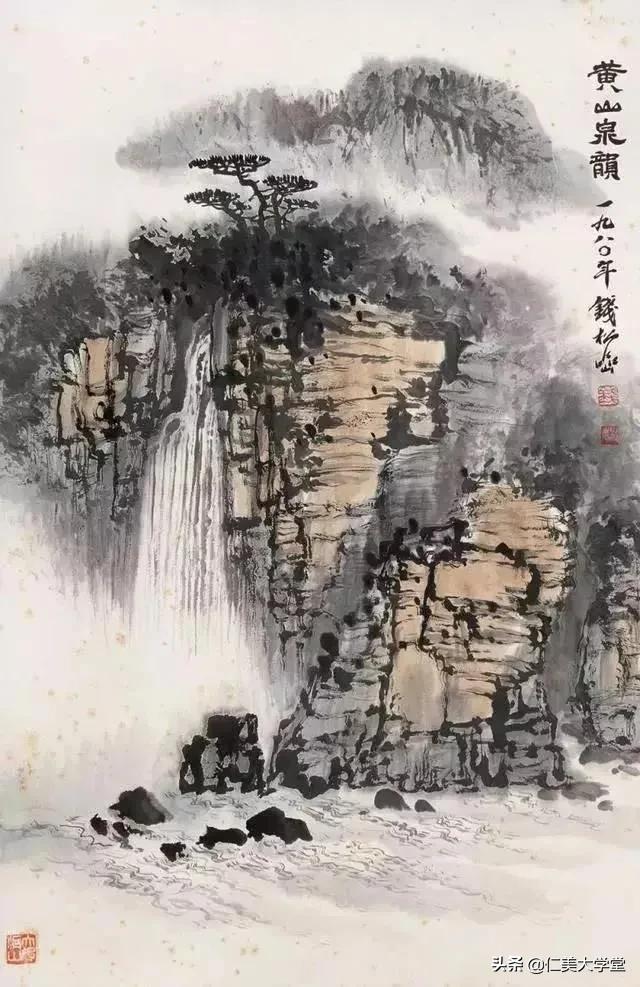 黄山泉韻
一九八〇年 錢松喦
头条 @仁美大学堂